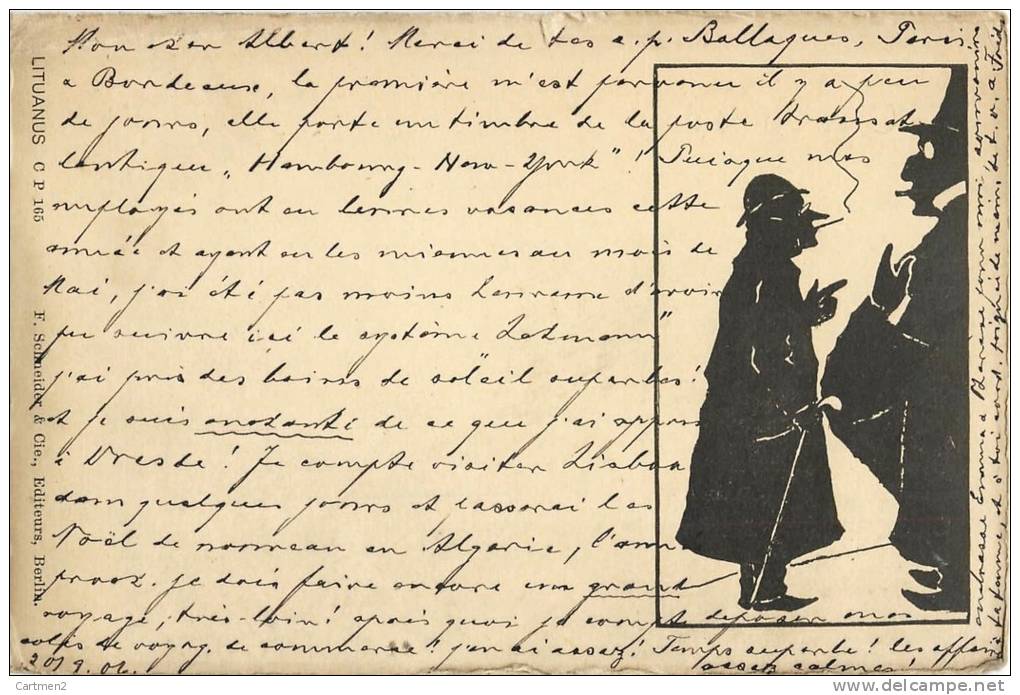 Mon cher Albert! Merci de tes c. p. Ballaques, Paris
a Bordeaux, la première m'est parvenu il y a peu
de jours, elle porte un timbre de la poste transat-
lantique „Hambourg-New-York"! Puisque mes
employés ont eu leurs vacances cette
année et ayant eu les miennes au mois de
Mai, j'ai été pas moins heureux d'avoir
pu suivre ici le système Lahmann"
j'ai pris des bains de soleil superbes!
et je suis enchanté de ce que j'ai appris
à Dresde! Je compte visiter Lisbon
dans quelques jours et passerai les
Noël de nouveau en Algérie, l'ann
proch. je dois faire encore un grand
voyage, très-loin! après quoi je compt deposer mes
colis de voyag. de commerce! j'en ai assez! Temps superbe! les affaires
assez calmes!
20/9.06.
adresse Emma a Thérèse pour moi
et ta femme, et à toi cord. poignée de main, de t. a. Fréd
LITUANUS C P 165
F. Schneider & Cie., Editeurs, Berlin.
Cartmen2
delcampe.net